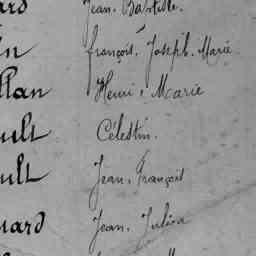 ard Jean. Baptiste.
in françois. Joseph. Marie
llan Henri. Marie
ult Célestin.
ult Jean. François
uard Jean. Julien